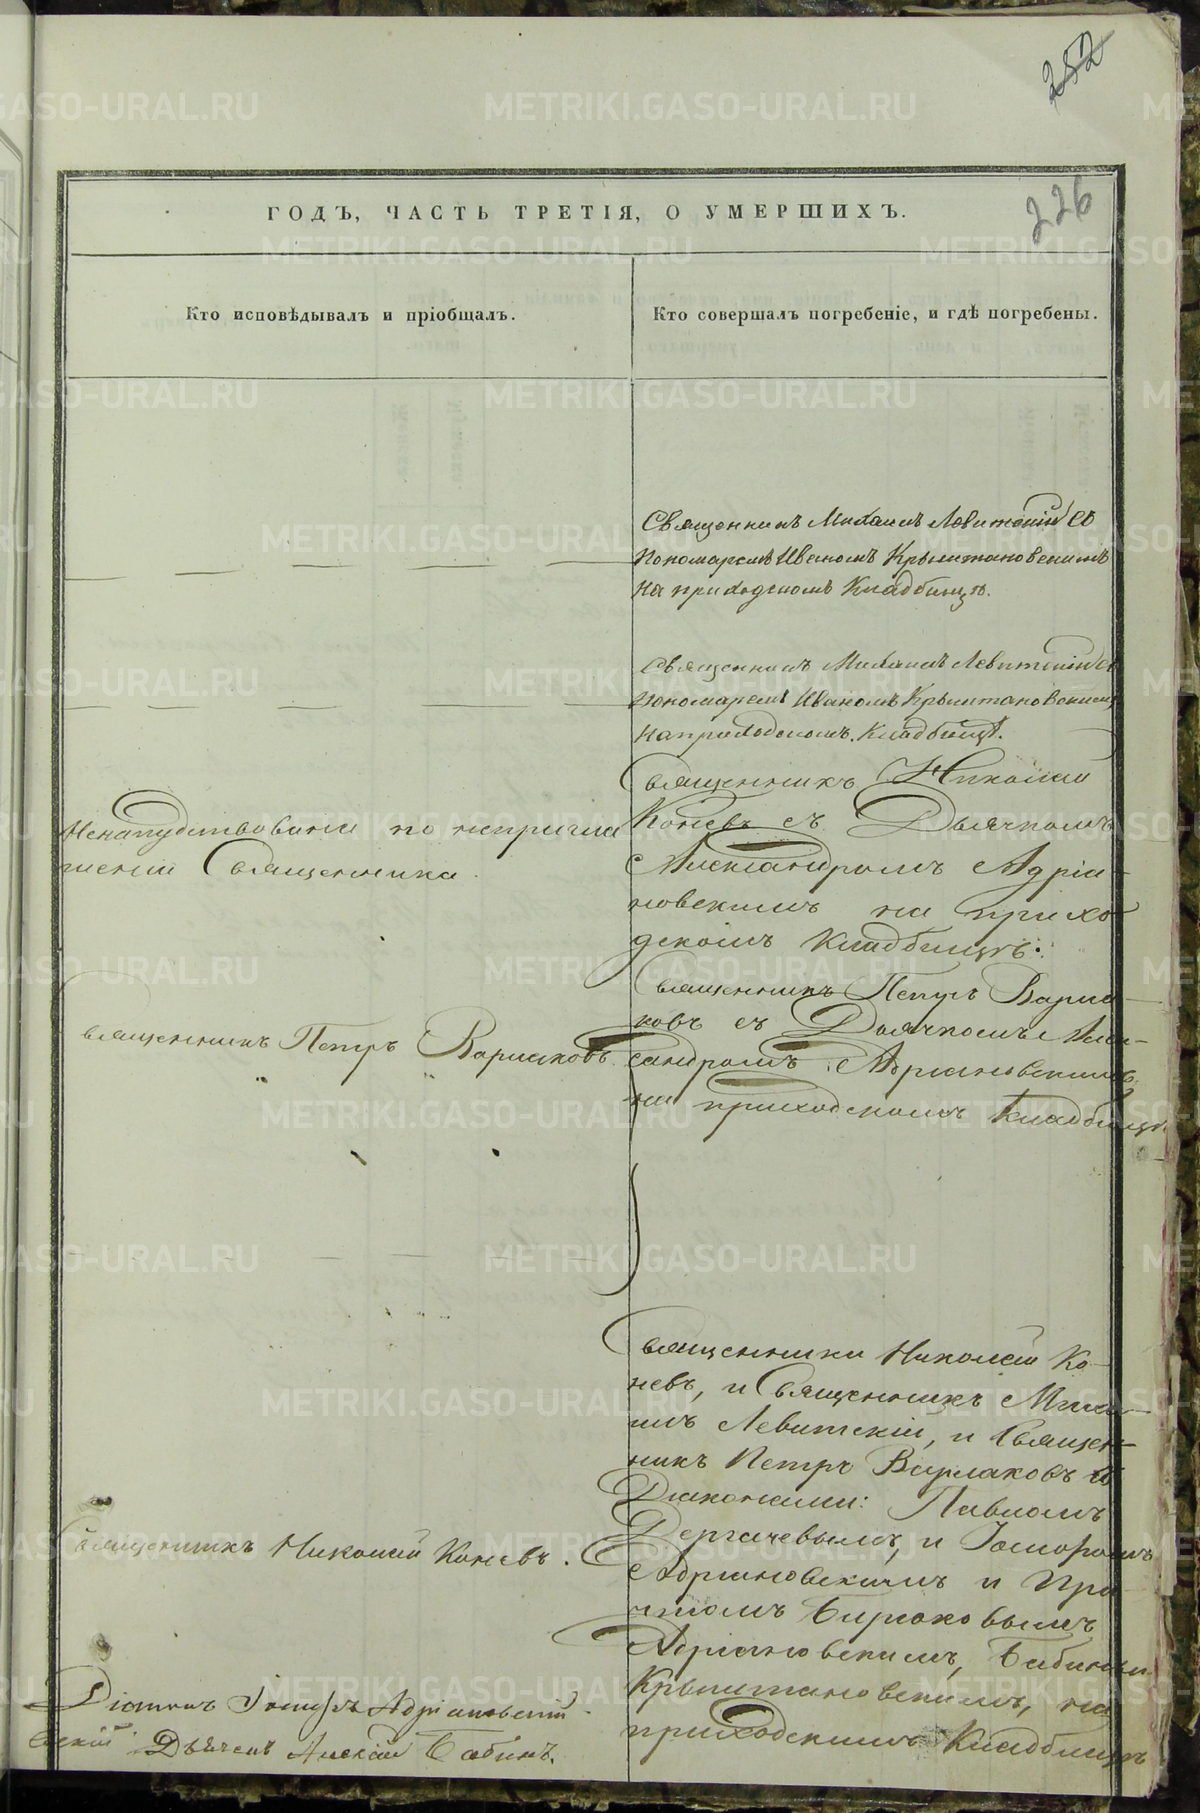 252
226
ГОДЪ, ЧАСТЬ ТРЕТІЯ, О УМЕРШИХЪ.
Кто исповѣдывалъ и пріобщалъ.
Кто совершалъ погребеніе, и гдѣ погребены.
Священникъ Михаилъ Левитскій съ
пономаремъ Иваномъ Крыжтановскимъ
на приходскомъ Кладбищѣ.
Священникъ Михаилъ Левитскій съ
пономаремъ Иваномъ Крыжтановскимъ
на приходскомъ Кладбищѣ.
Ненапудствованы по непригла
шенію Священника.
Священникъ Николай
Коневъ съ Дьячкомъ
Александромъ Адріа-
новскимъ на прихо
дскомъ Кладбищѣ.
Священникъ Петръ Варлаковъ
Священникъ Петръ Варла-
ковъ съ Дьячкомъ Алек-
сандромъ Адріановскимъ
на приходскомъ Кладбищѣ
Священникъ Николай Коневъ.
Діаконъ Адріановскій
Дьячекъ Алексѣй Бабинъ.
Священники Николай Ко-
невъ, и Священникъ Миха-
илъ Левитскій, и Священ-
никъ Петръ Варлаковъ съ
Діаконами: Павломъ
Дергачевымъ, и
Адріановскимъ и При-
чтомъ Бирюковымъ
Адріановскимъ, Бабинымъ
Крыжтановскимъ, на
приходскимъ Кладбищѣ
METRIKI.GASO-URAL.RU